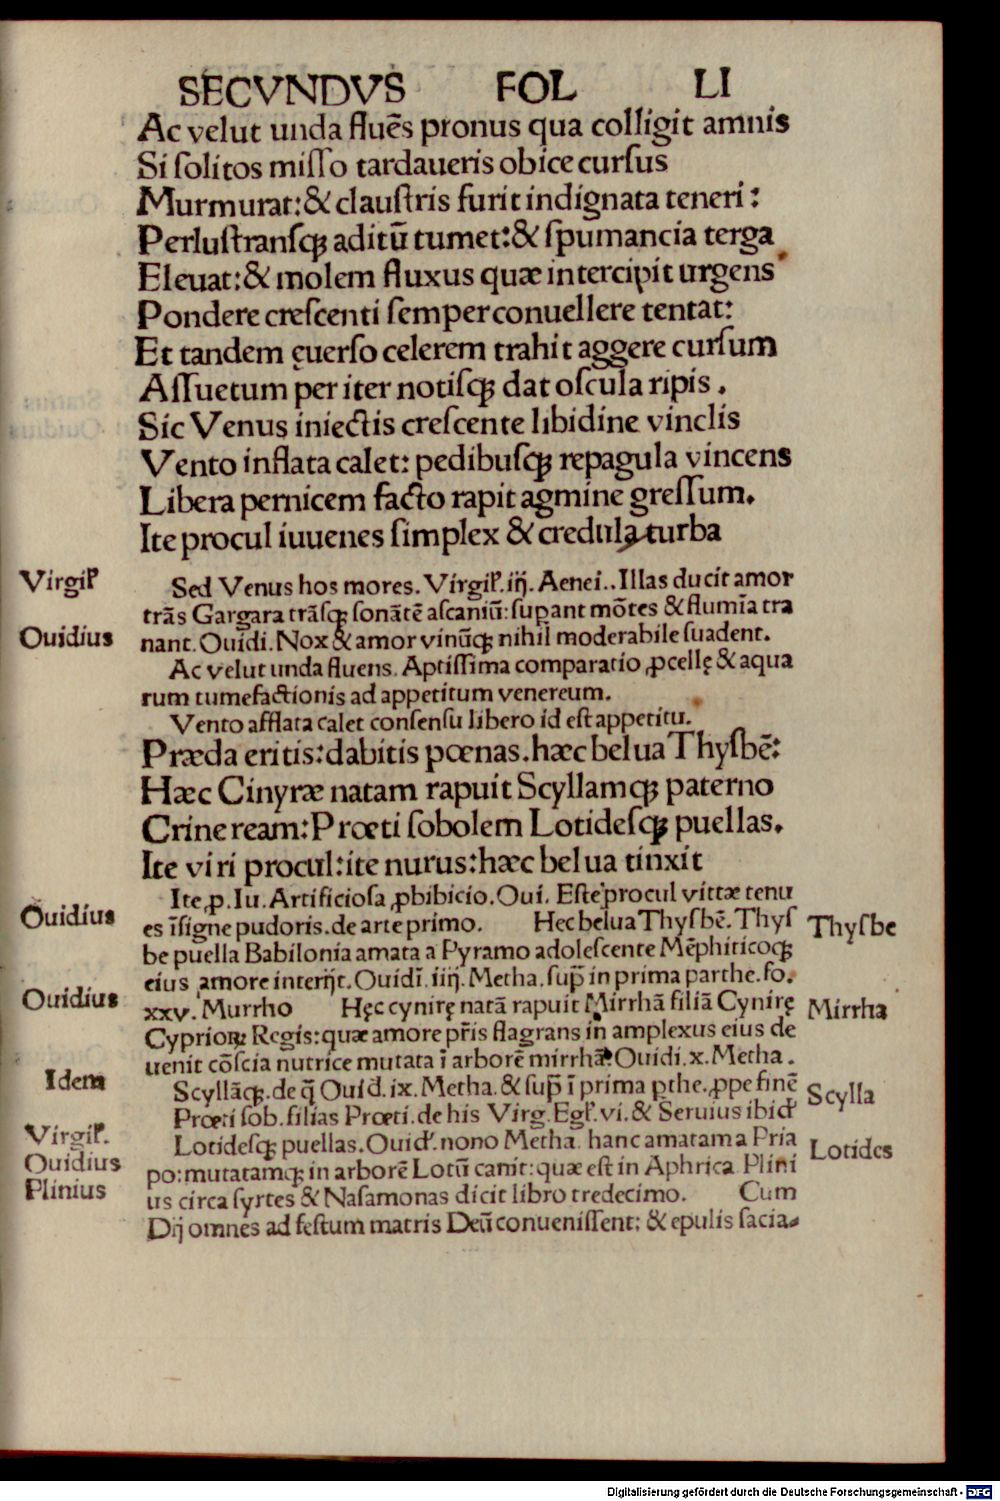 SECVNDVS FOL LI
Ac velut unda fluẽs pronus qua colligit amnis
Si ſolitos miſſo tardaueris obice curſus
Murmurat:& clauſtris furit indignata teneri:
Perluſtranſqꝫ aditũ tumet:& ſpumancia terga
Eleuat:& molem fluxus quæ intercipit urgens
Pondere creſcenti ſemper conuellere tentat:
Et tandem ęuerſo celerem trahit aggere curſum
Aſſuetum per iter notiſqꝫ dat oſcula ripis.
Sic Venus iniectis creſcente libidine vinclis
Vento inflata calet: pedibuſqꝫ repagula vincens
Libera pernicem facto rapit agmine greſſum.
Ite procul iuuenes ſimplex & credula turba
Virgiľ Sed Venus hos mores. Virgiľ. iij. Aenei.. Illas ducit amor
trãs Gargara trãſqꝫ ſonãtẽ aſcaniũ: ſuꝑant mõtes & flumĩa tra
Ouidius nant. Ouidi. Nox & amor vinũqꝫ nihil moderabile ſuadent.
Ac velut unda fluens. Aptiſſima comparatio ꝓcellę & aqua
rum tumefactionis ad appetitum venereum.
Vento afflata calet conſenſu libero id eſt appetitu.
Præda eritis: dabitis pœnas. hæc belua Thyſbẽ:
Hæc Cinyræ natam rapuit Scyllamqꝫ paterno
Crine ream: Prœti ſobolem Lotideſqꝫ puellas.
Ite viri procul: ite nurus: hæc belua tinxit
Ite, p. Iu. Artificioſa ꝓhibicio. Oui. Eſte procul vittæ tenu
Ouidius es ĩſigne pudoris. de arte primo. Hec belua Thyſbẽ. Thyſ Thyſbe
be puella Babilonia amata a Pyramo adoleſcente Mẽphiticoqꝫ
eius amore interijt. Ouidĩ. iiij. Metha. ſup̃ in prima parthe. fo.
Ouidius xxv. Murrho Hęc cynirę natã rapuit Mirrhã filiã Cynirę Mirrha
Cyprioꝝ Regis: quæ amore pr̃is flagrans in amplexus eius de
uenit cõſcia nutrice mutata ĩ arborẽ mirrhã. Ouidi. x. Metha.
Idem Scyllãqꝫ. de q̃ Ouid. ix. Metha. & ſup̃ ĩ prima ꝑthe. ꝓpe finẽ Scylla
Prœti ſob. filias Prœti. de his Virg. Egľ. vi. & Seruius ibid'
Virgiľ. Lotideſqꝫ puellas. Ouid'. nono Metha. hanc amatam a Pria Lotides
Ouidius po: mutatamqꝫ in arborẽ Lotũ canit: quæ eſt in Aphrica Plini
Plinius us circa ſyrtes & Naſamonas dicit libro tredecimo. Cum
Dij omnes ad feſtum matris Deũ conueniſſent: & epulis ſacia⸗
Digitalisierung gefördert durch die Deutsche Forschungsgemeinschaft - DFG